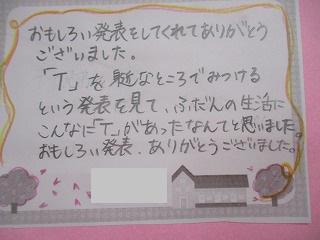 おもしろい発表をしてくれてありがとう
ございました。
「T」を身近なところでみつける
という発表を見て、ふだんの生活に
こんなに「T」があったなんてと思いました。
おもしろい発表、ありがとうございました。